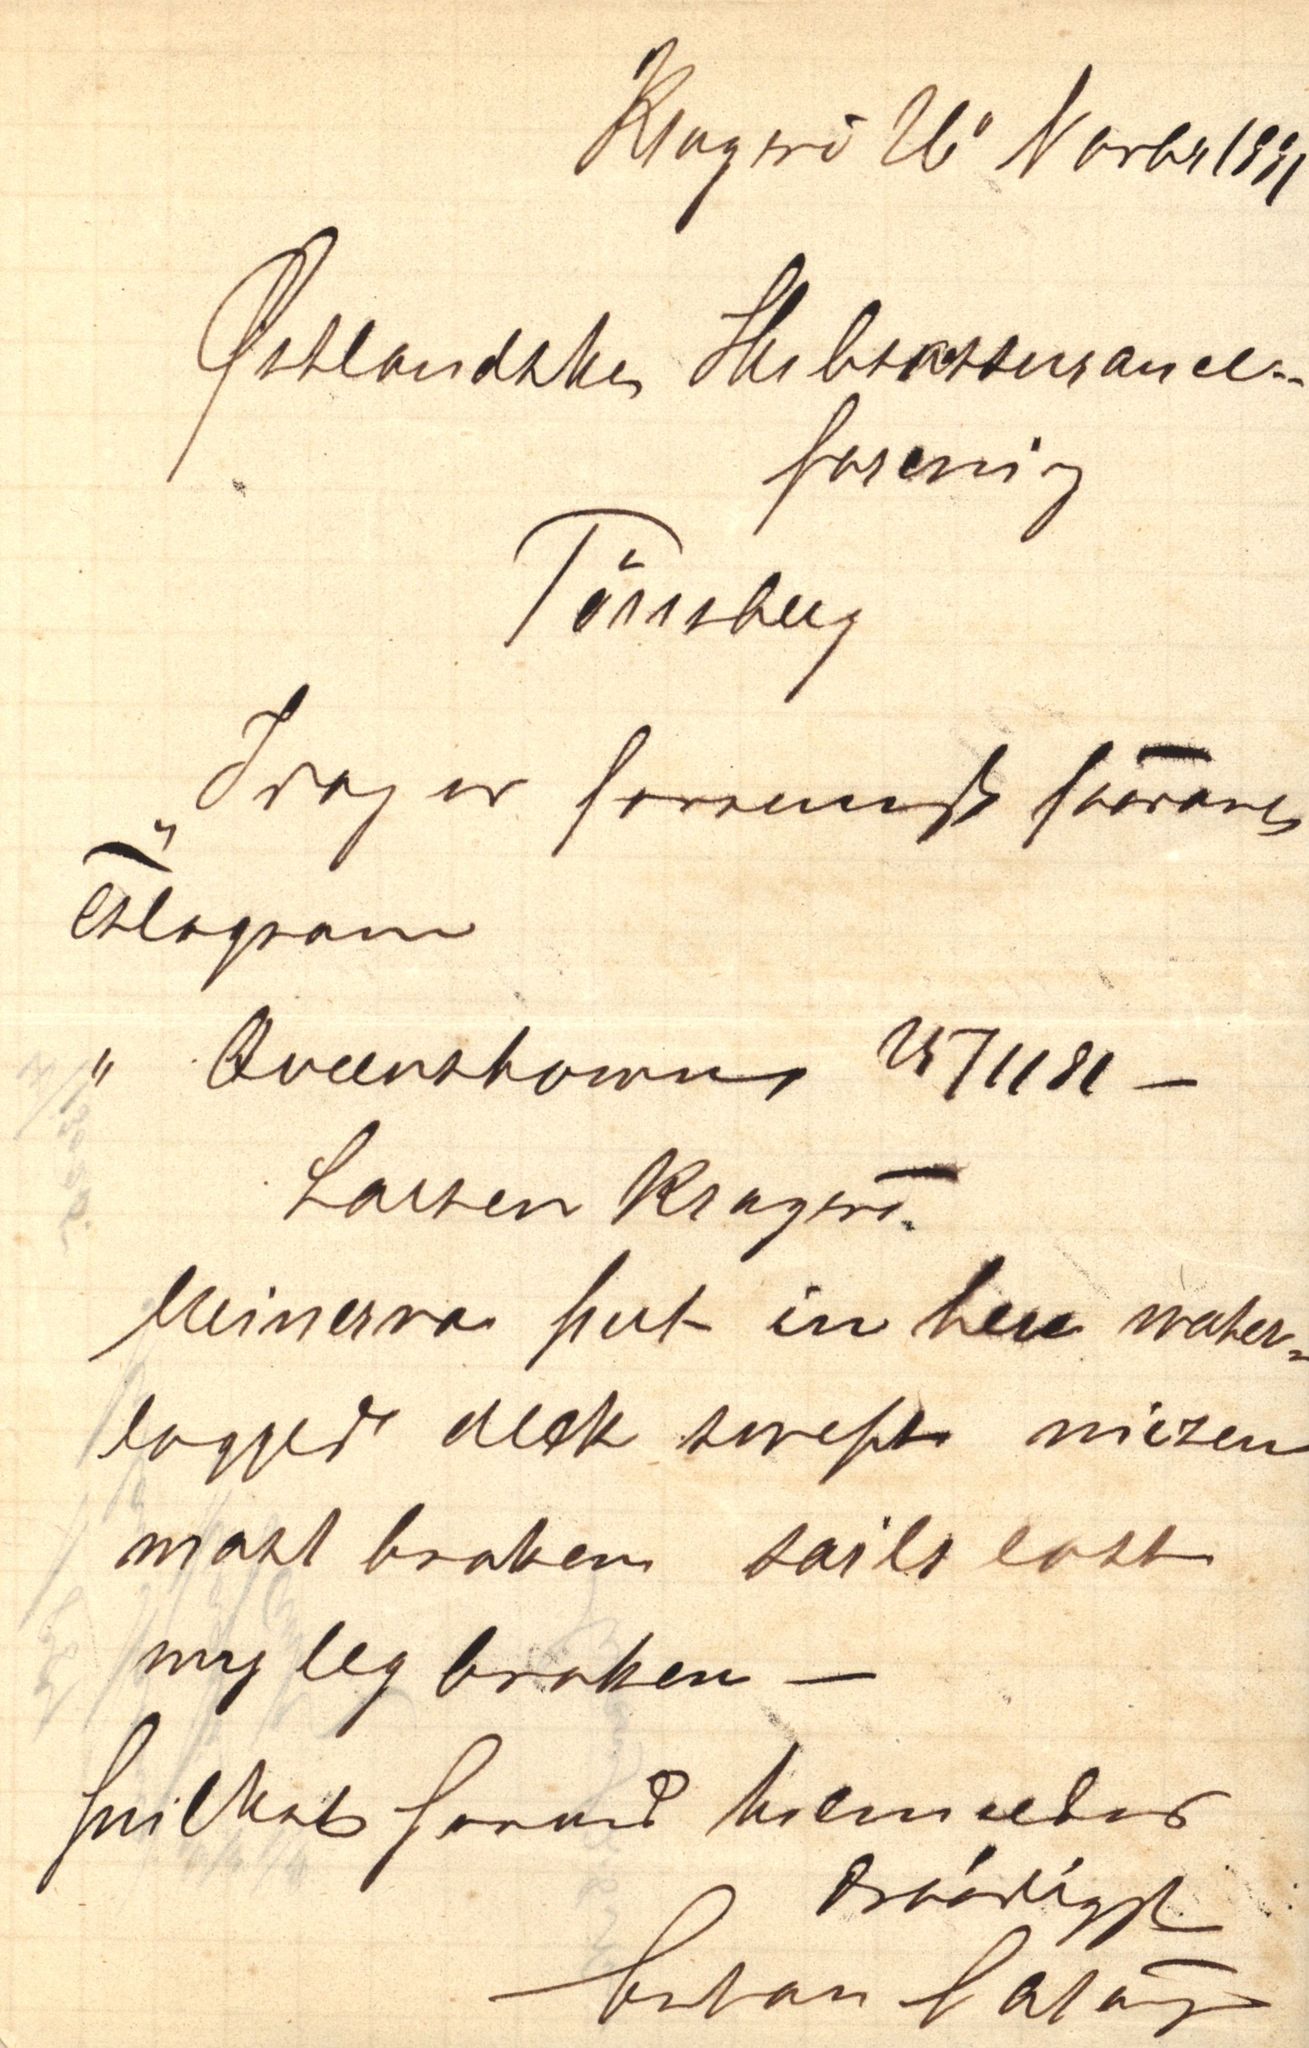 Kragerö 26 Novbr 1881
Østlandske Skibsassurance-
forening
Tönsberg
Idag er
Telegram
" Queenstown 25/11 81 –
Larsen Kragerö.
Minerva put in here water-
logged deck swept mizen
mast broken sails lost
my leg broken –
hvilket herved anmeldes
Ærbödigst